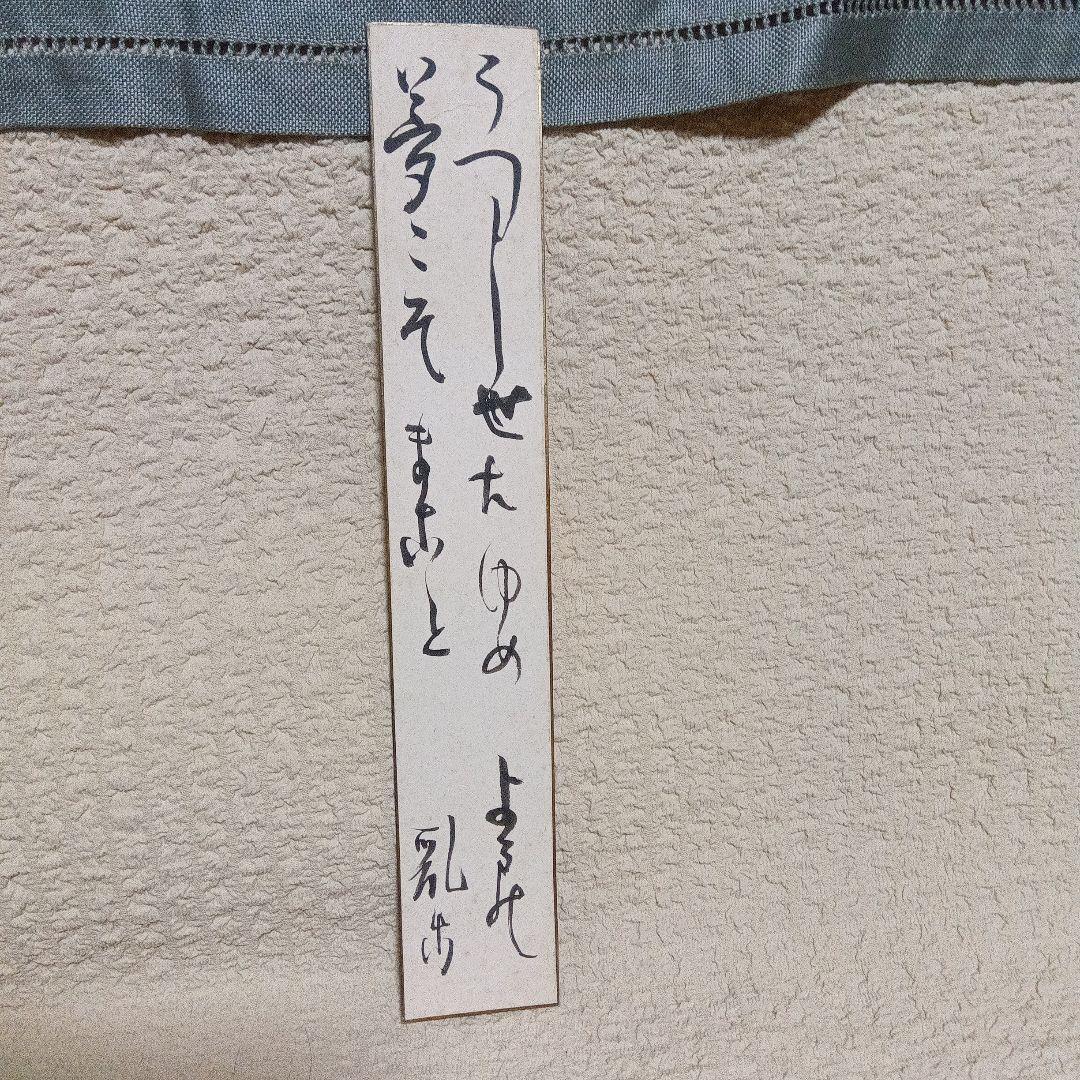 うつし世はゆめ よるの
夢こそまこと
亂歩